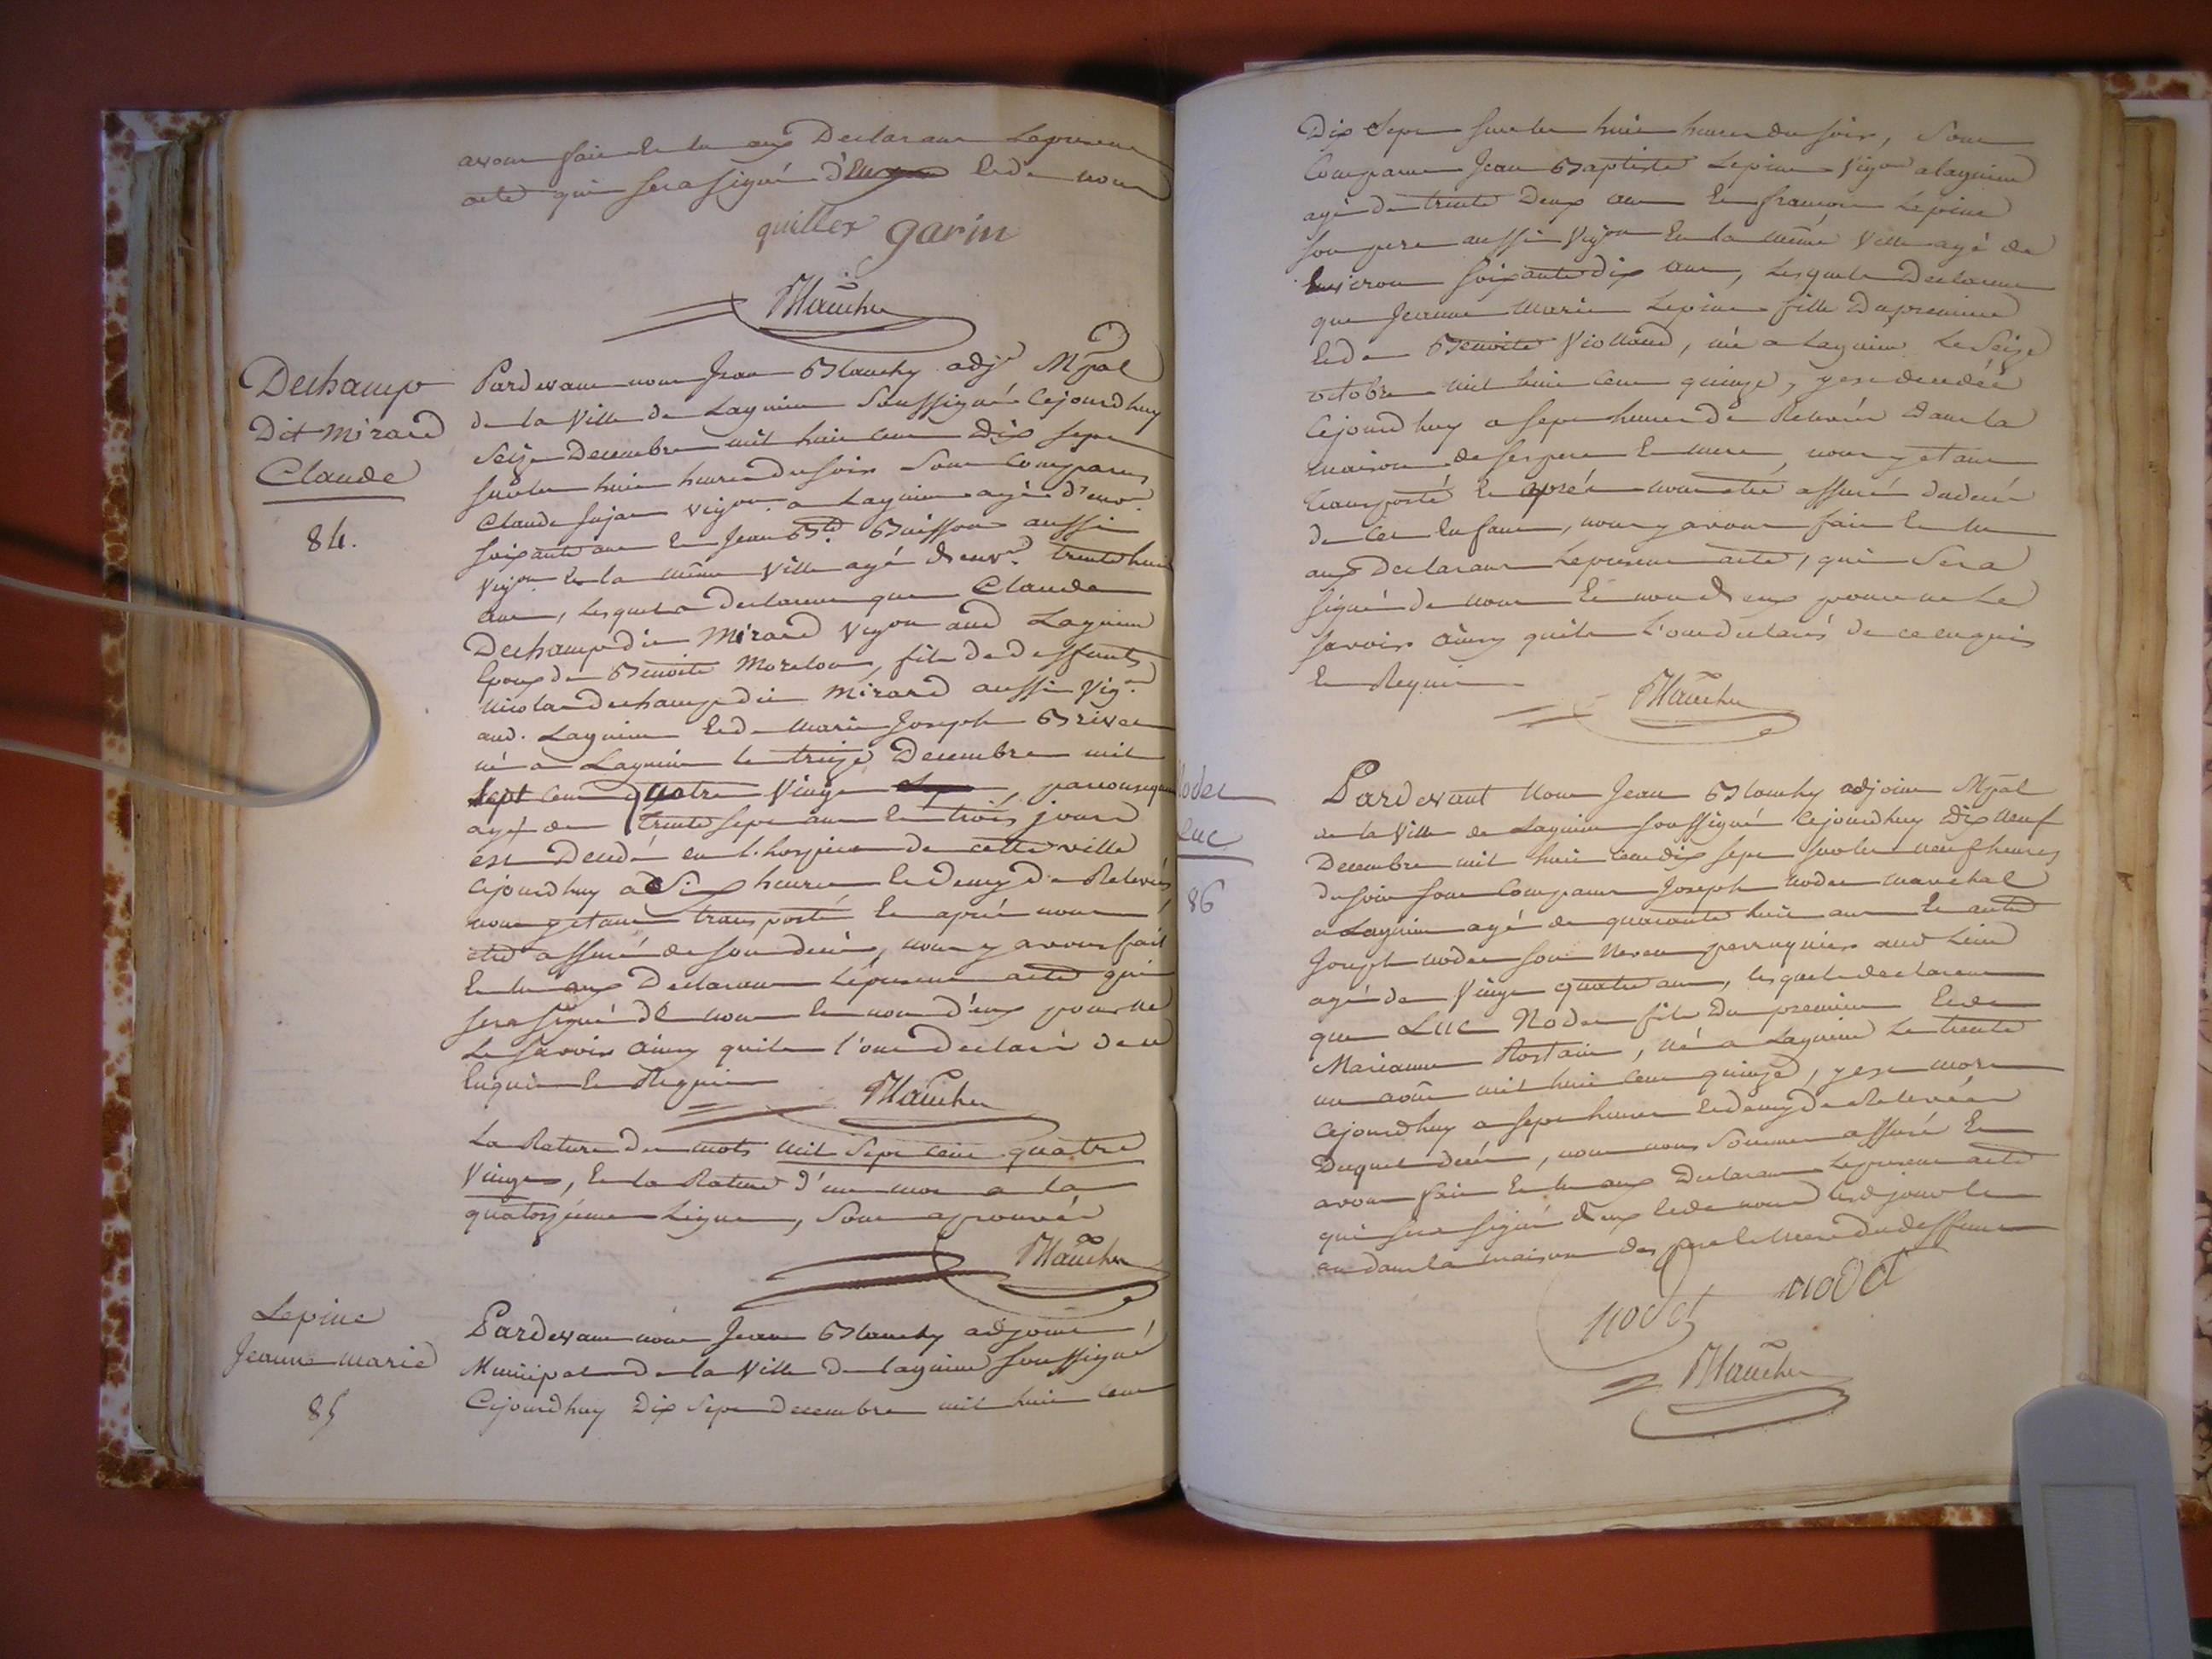 avons fait et lu aux Declarans Lepresent
acte qui sera signé d'eux et de nous
quiller garin
Blanchy
Dechamp
Dit Mirard
Claude
84.
Pardevant nous Jean Blanchy adjt Mpal
de la Ville de Lagnieu Soussigné Cejourdhuy
Seize Decembre mil huit cent Dix sept
sur les huit heures du soir Sont comparus
Claude vigon a Lagnieu agé d'env.
soixante ans et Jean Bte Buisson aussi
vign en la même Ville agé d'env. trente huit
ans, lesquels declarent que Claude
Dechamp dit Mirard vigon aud Lagnieu
Epoux de Benoite Morelon, fils de deffunts
Nicolas dechamp dit Mirard aussi Vign
aud. Lagnieu et de Marie Joseph Brivet
né a Lagnieu le treize Decembre mil
sept cent quatre Vingt , par consequent
agé de trente sept ans et trois jours
est Decedé en l'hospice de cette ville
Cejourdhuy a Six heures et demy de Relevée
nous y etant transporté et aprés nous
etre assuré de son decés, nous y avons fait
et lu aux Declarans Lepresent acte qui
sera signé de nous et non d'eux pour ne
Le savoir ainsy quils l'ont declaré de ce
Enquis et Requis
Blanchy
La Rature des mots mil Sept cent quatre
Vingt, et la Rature d'un mot a la
quatorzieme Ligne, Sont aprouvés
Blanchy
Lepine
Jeanne marie
85
Pardevant nous Jean Blanchy adjoint
Municipal de la Ville de lagnieu soussigné
Cejourdhuy Dix Sept decembre mil huit cent
Dix Sept sur les huit heures du soir, Sont
Comparus Jean Baptiste Lepine Vigon a lagnieu
agé de trente Deux ans et françois Lépine
son pere aussi Vigon en la même Ville agé de
Environ soixante dix ans, Lesquels Declarent
que Jeanne Marie Lepine fille Du premier
et de Benoite Violland, né a Lagnieu Le Seize
octobre mil huit cent quinze, y est decedée
Cejourdhuy a sept heures de Relevée dans la
maison de ses pere et mere, nous y etant
transporté et aprés nous etre assuré du decés
de cet Enfant, nous y avons fait et lu
aux Declarans Lepresent acte, qui Sera
signé de nous et non d'eux pour ne Le
savoir ainsy quils l'ont declaré de ce enquis
et Requis
Blanchy
Nodet
Luc
86
Pardevant Nous Jean Blanchy adjoint Mpal
de la Ville de Lagnieu soussigné Cejourdhuy Dix Neuf
Decembre mil huit cent dix sept sur les neuf heures
du soir sont Comparus Joseph Nodet marechal
a Lagnieu agé de quarante huit ans et autre
Joseph nodet son Neveu perruquier aud Lieu
agé de Vingt quatre ans, lesquels declarent
que Luc Nodet fils Du premier et de
Marianne Rostain, né a Lagnieu Le trente
un aoûst mil huit cent quinze, y est mort
Cejourdhuy a sept heures et demy de Relevée
Duquel decés, nous nous Sommes assuré et
avons fait et lu aux Declarans Lepresent acte
qui sera signé d'eux et de nous lesd jour et
an dans la maison des pere et mere du deffunt
nodet nodet
Blanchy